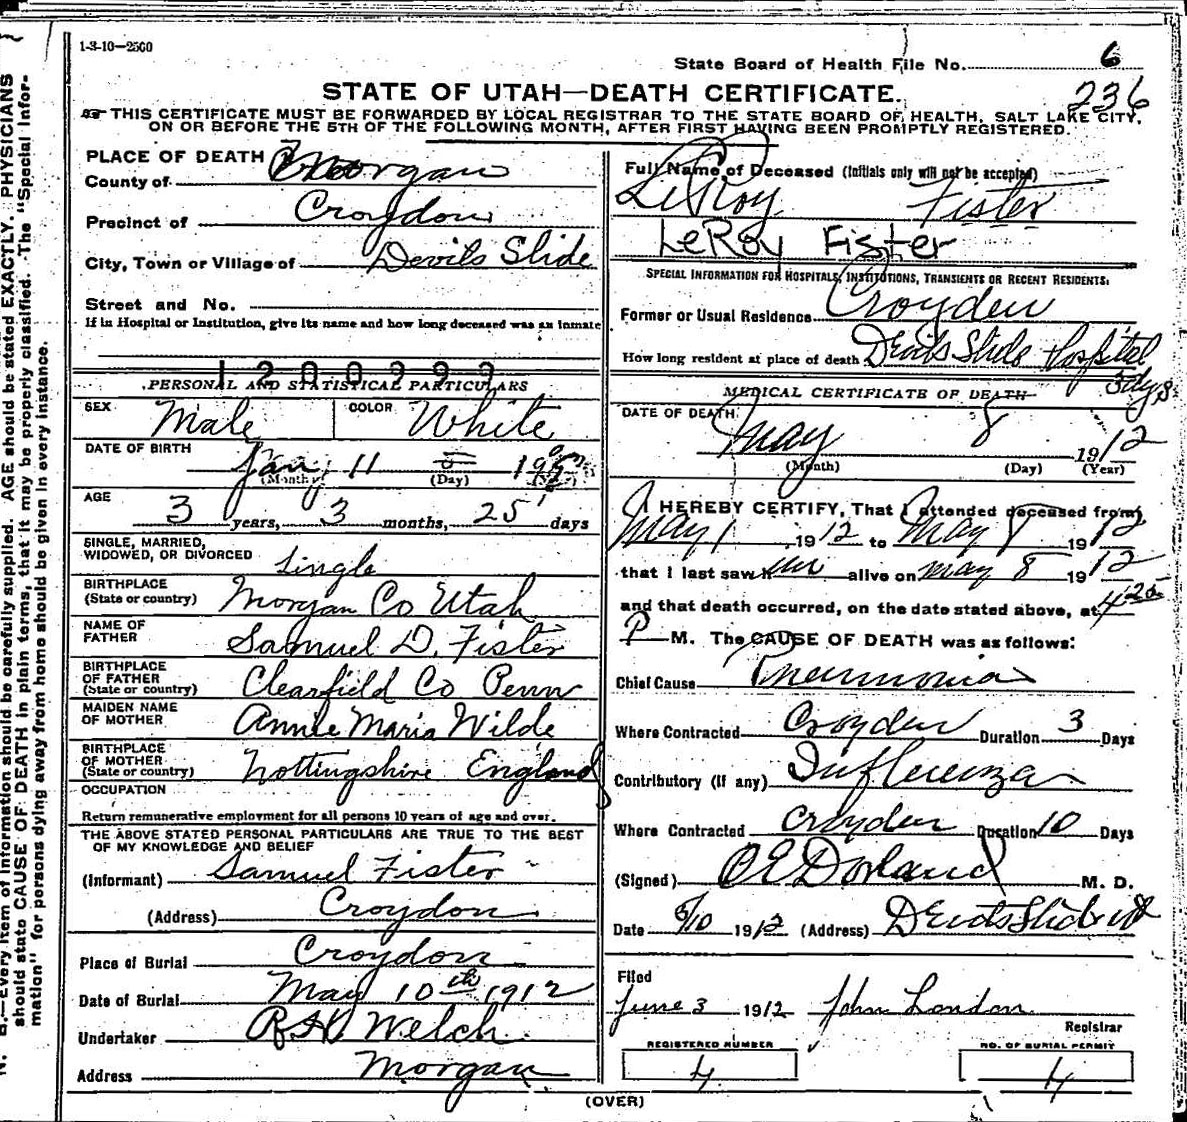 1-3-10-2500
State Board of Health File No. 6
236
STATE OF UTAH—DEATH CERTIFICATE.
THIS CERTIFICATE MUST BE FORWARDED BY LOCAL REGISTRAR TO THE STATE BOARD OF HEALTH, SALT LAKE CITY,
ON OR BEFORE THE 5TH OF THE FOLLOWING MONTH, AFTER FIRST HAVING BEEN PROMPTLY REGISTERED.
N. B.—Every item of information should be carefully supplied. AGE should be stated EXACTLY. PHYSICIANS
should state CAUSE OF DEATH in plain terms, that it may be properly classified. The "Special Infor-
mation" for persons dying away from home should be given in every instance.
PLACE OF DEATH
County of Morgan
Precinct of Croydon
City, Town or Village of Devils Slide
Street and No.
If in Hospital or Institution, give its name and how long deceased was an inmate
1200999
PERSONAL AND STATISTICAL PARTICULARS
SEX Male COLOR White
DATE OF BIRTH Jan 11
(Month) (Day)
AGE 3 years, 3 months, 25 days
SINGLE, MARRIED,
WIDOWED, OR DIVORCED Single
BIRTHPLACE
(State or country) Morgan Co Utah
NAME OF
FATHER Samuel D. Fister
BIRTHPLACE
OF FATHER
(State or country) Clearfield Co Penn
MAIDEN NAME
OF MOTHER Annie Maria Wilde
BIRTHPLACE
OF MOTHER
(State or country) Nottingshire England
OCCUPATION
Return remunerative employment for all persons 10 years of age and over.
THE ABOVE STATED PERSONAL PARTICULARS ARE TRUE TO THE BEST
OF MY KNOWLEDGE AND BELIEF
(Informant) Samuel Fister
(Address) Croydon
Place of Burial Croydon
Date of Burial May 10th 1912
Undertaker Welch
Address Morgan
Full Name of Deceased (Initials only will not be accepted)
LeRoy Fister
LeRoy Fister
SPECIAL INFORMATION FOR HOSPITALS, INSTITUTIONS, TRANSIENTS OR RECENT RESIDENTS:
Former or Usual Residence Croyden
How long resident at place of death Devils Slide Hospital
3 dys
MEDICAL CERTIFICATE OF DEATH
DATE OF DEATH
May 8 1912
(Month) (Day) (Year)
I HEREBY CERTIFY, That I attended deceased from
May 1 1912 to May 8 1912
that I last saw him alive on May 8 1912
and that death occurred, on the date stated above, at 4 20
P M. The CAUSE OF DEATH was as follows:
Chief Cause Pneumonia
Where Contracted Croyden Duration 3 Days
Contributory (if any) Influenza
Where Contracted Croyden Duration 10 Days
(Signed) O E Dorland M. D.
Date 5/10 1912 (Address) Devils Slide Ut
Filed
June 3 1912 John London
Registrar
REGISTERED NUMBER
4
NO. OF BURIAL PERMIT
4
(OVER)